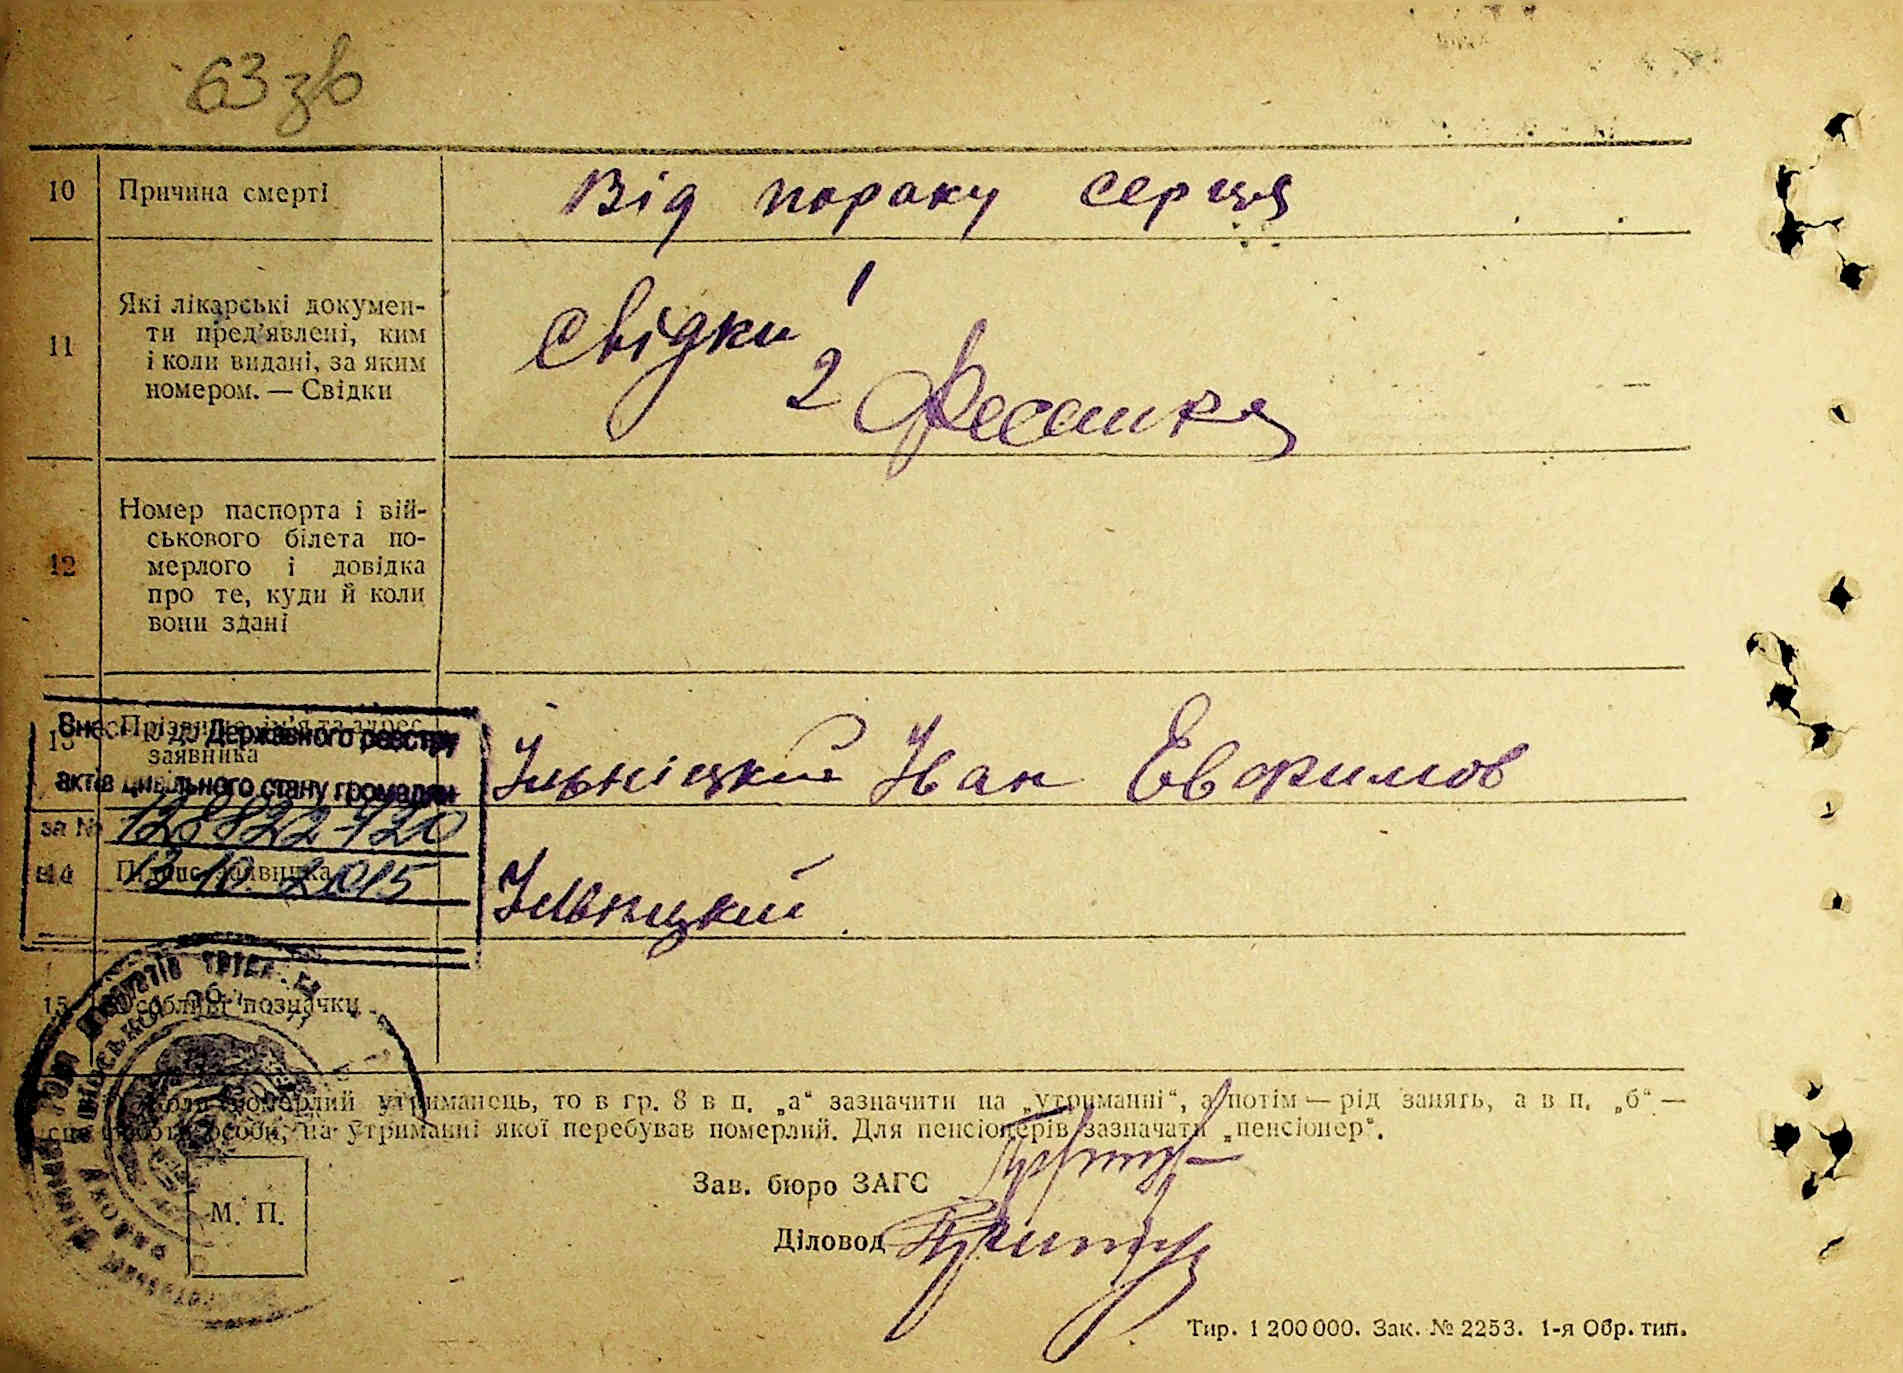 63 зв
10 Причина смерті Від пороку серця
11 Які лікарські докумен-
ти пред'явлені, ким
і коли видані, за яким
номером. — Свідки
Свідки 1
2
12 Номер паспорта і вій-
ськового білета по-
мерлого і довідка
про те, куди й коли
вони здані
13 Прізвище, ім'я та адрес
заявника
Ільніцкий Іван Евфимов
Внесено до Державного реєстру
актів цивільного стану громадян
за № 128822-720
від 13.10.2015
14 Підпис заявника
Ильницкий
15 Особливі позначки
Коли померлий утриманець, то в гр. 8 в п. „а“ зазначити на „утриманні“, а потім — рід занять, а в п. „б“ —
особи, на утриманні якої перебував померлий. Для пенсіонерів зазначати „пенсіонер“.
М. П.
Зав. бюро ЗАГС
Діловод
Тир. 1 200 000. Зак. № 2253. 1-я Обр. тип.